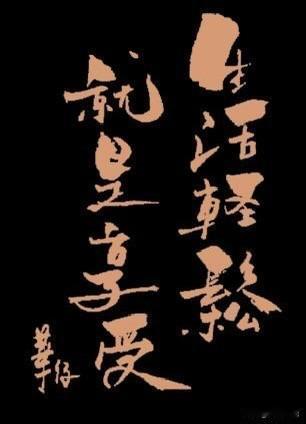 生活輕鬆
就是享受
華仔